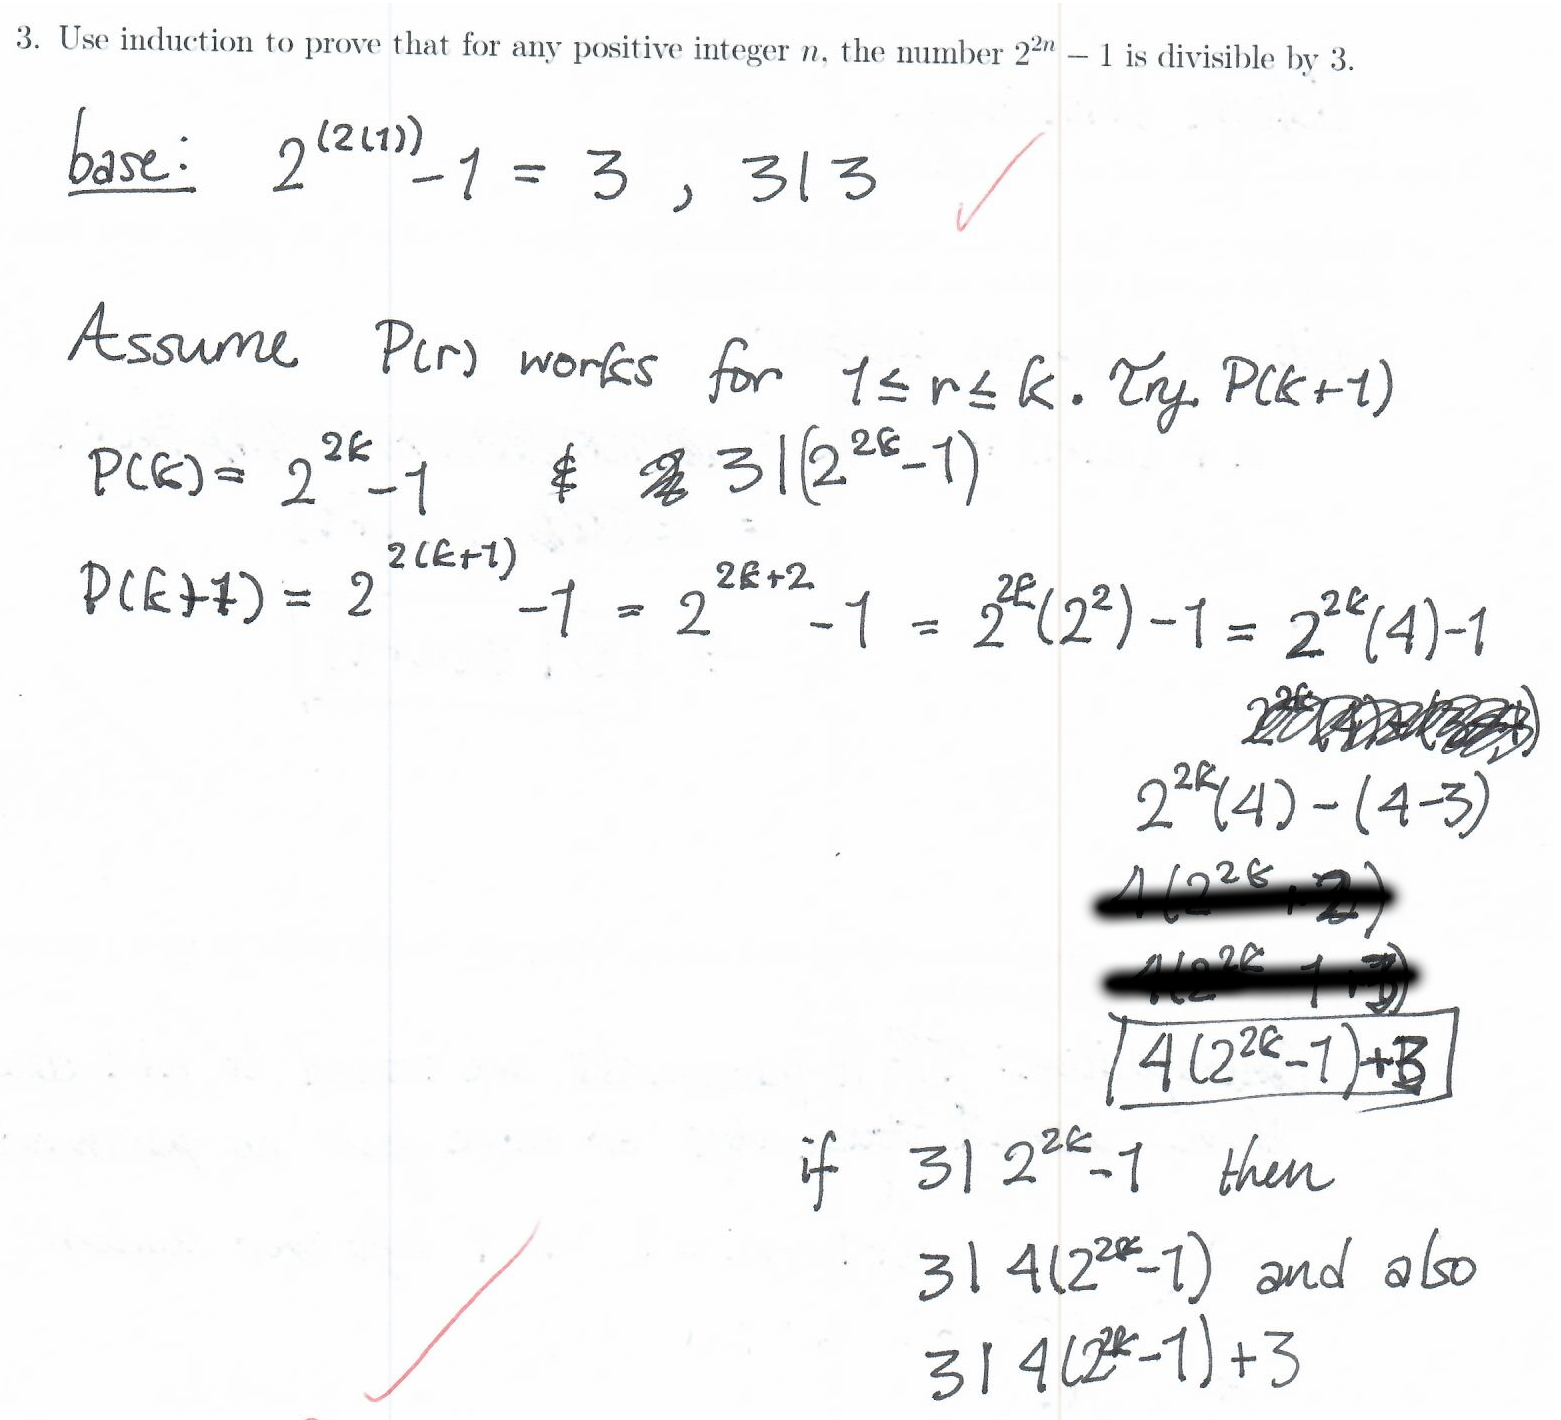 3. Use induction to prove that for any positive integer n, the number 2^{2n} − 1 is divisible by 3.
base: 2^{(2(1))} - 1 = 3 , 3|3 ✓
Assume P(r) works for 1 ≤ r ≤ k. Try P(k+1)
P(k) = 2^{2k} - 1 & 3|(2^{2k} - 1)
P(k+1) = 2^{2(k+1)} - 1 = 2^{2k+2} - 1 = 2^{2k}(2^2) - 1 = 2^{2k}(4) - 1
2^{2k}(4) - (4-3)
4(2^{2k} - 1) + 3
if 3| 2^{2k} - 1 then
3| 4(2^{2k} - 1) and also
3| 4(2^{2k} - 1) + 3
✓